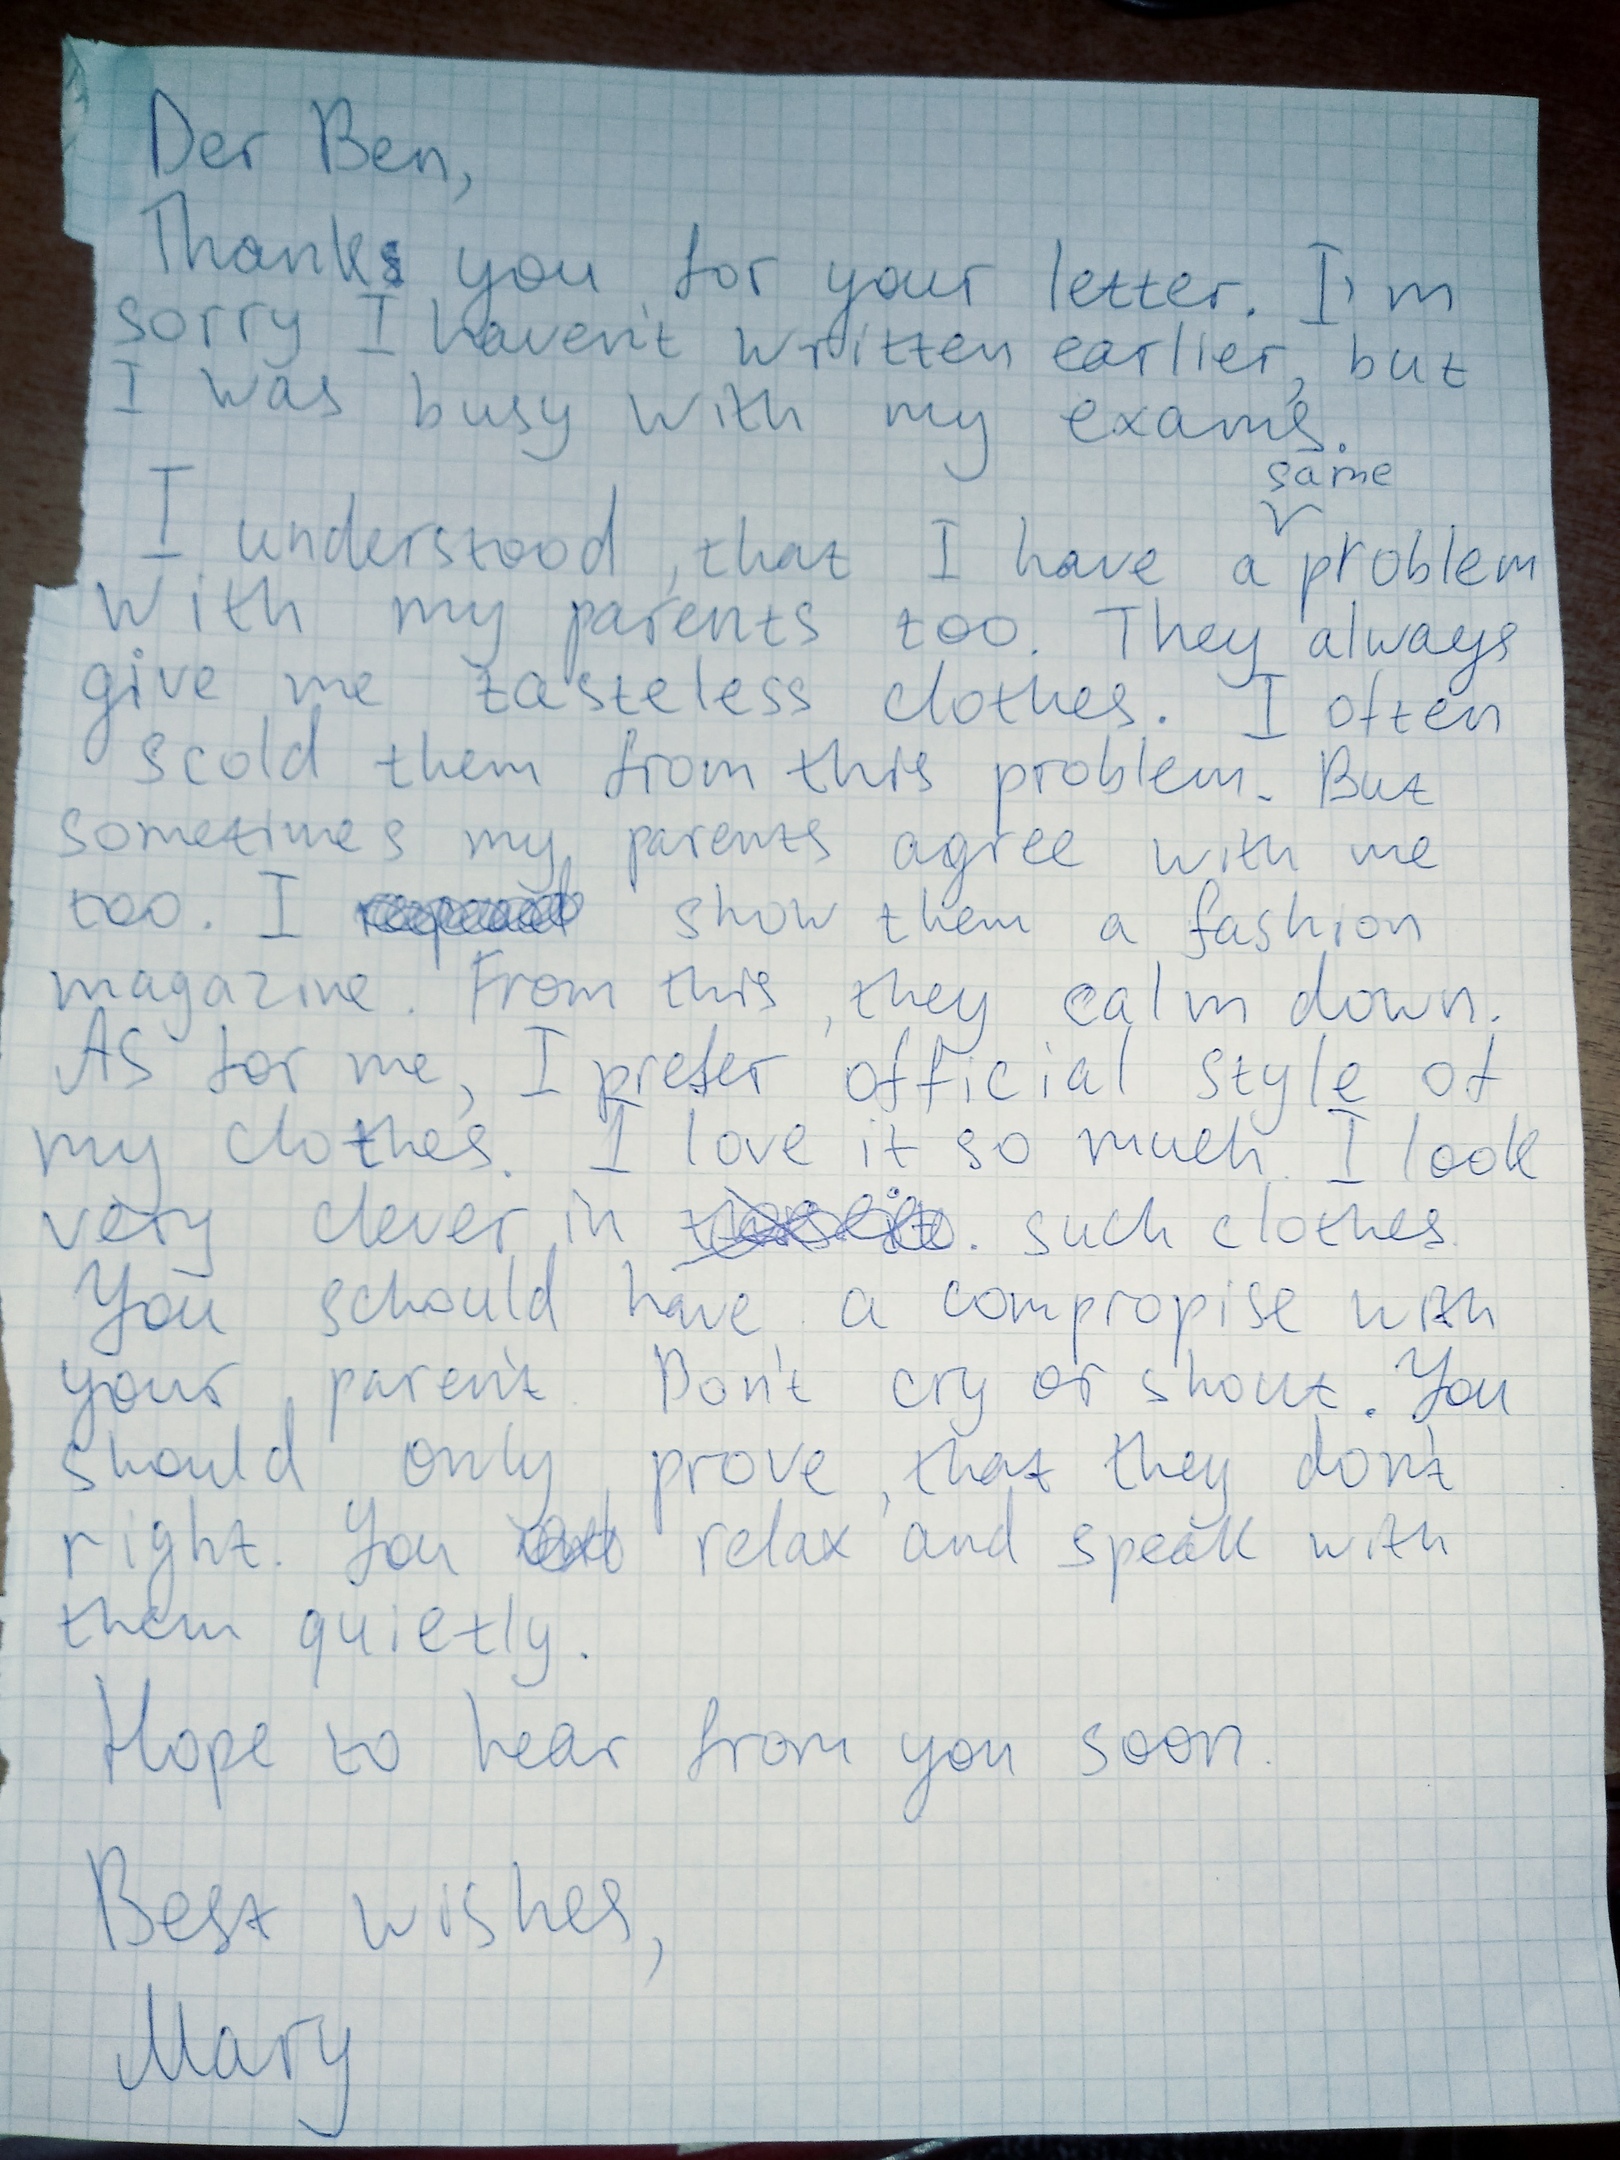 Der Ben,
Thanks you for your letter. I'm
sorry I haven't written earlier, but
I was busy with my exams.
same
I understood, that I have a problem
with my parents too. They always
give me tasteless clothes. I often
scold them from this problem. But
sometimes my parents agree with me
too. I show them a fashion
magazine. From this, they calm down.
As for me, I prefer official style of
my clothes. I love it so much. I look
very clever in such clothes.
You schould have a compropise with
your paren't. Don't cry or shout. You
should only prove, that they don't
right. You relax and speak with
them quietly.
Hope to hear from you soon.
Best wishes,
Mary